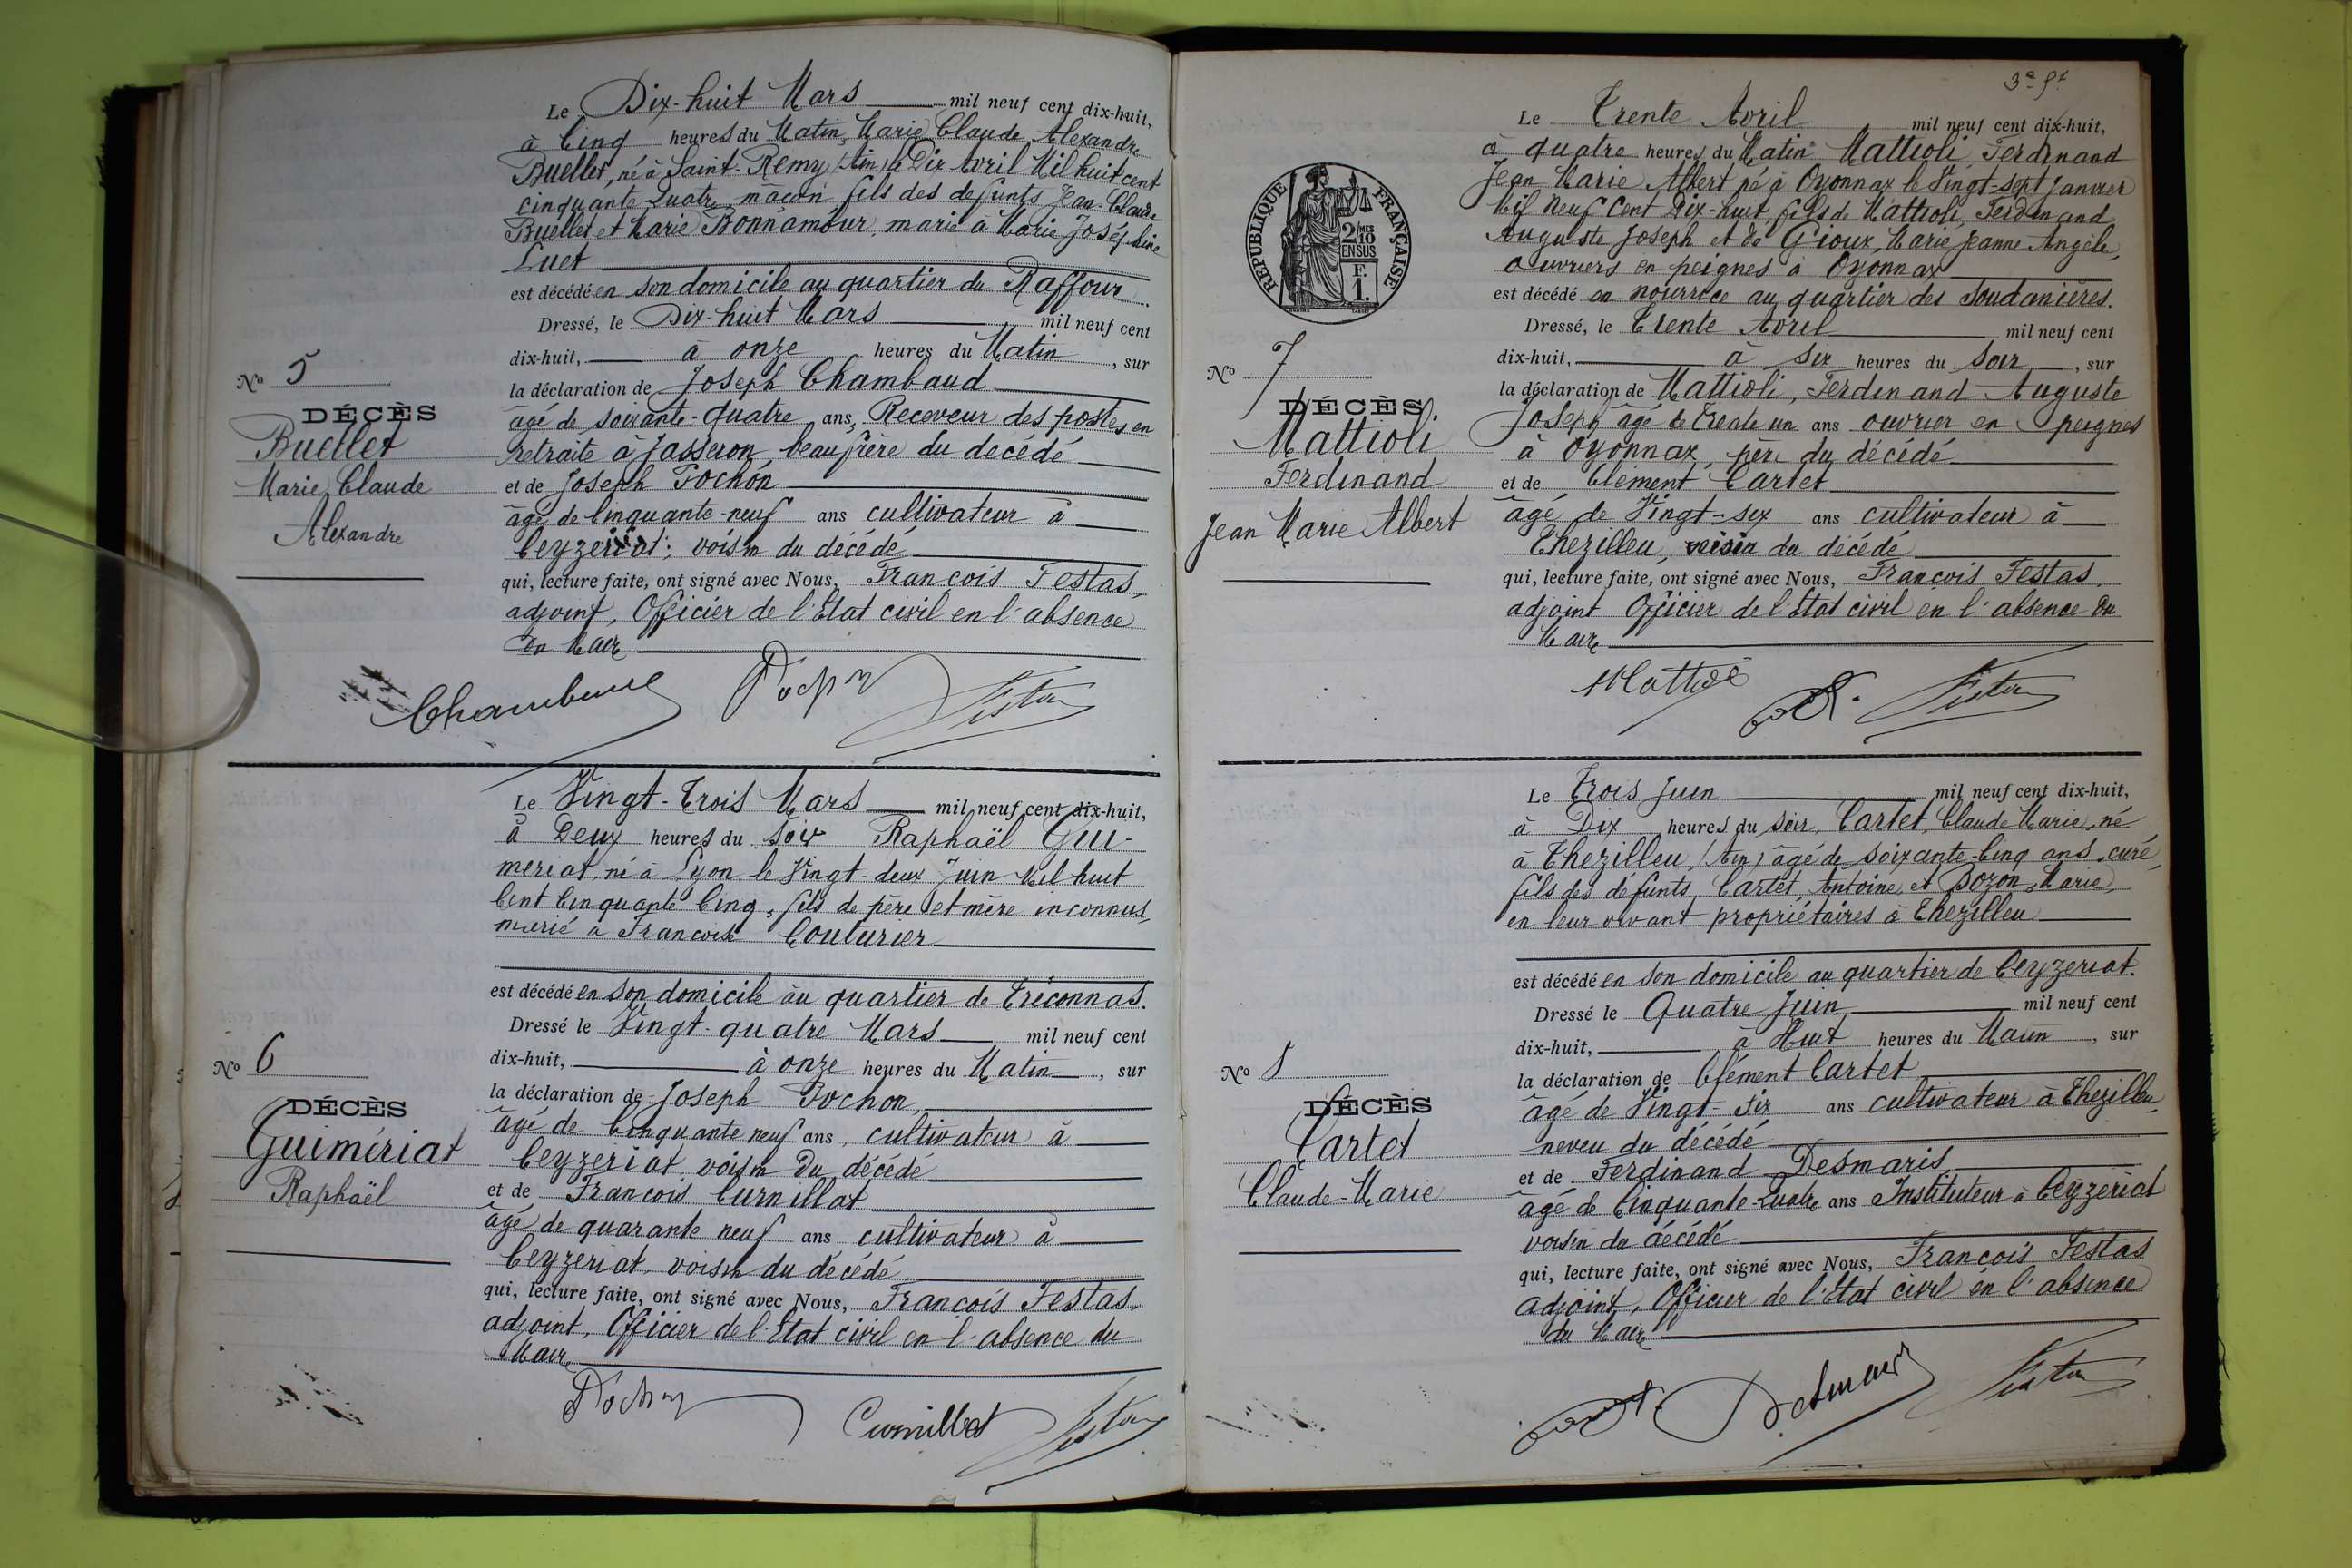 Le Dix-huit Mars mil neuf cent dix-huit,
à Cinq heures du Matin, Marie Claude Alexandre
Buellet, né à Saint-Remy (Ain) le Dix Avril Mil huit cent
cinquante Quatre, maçon fils des defunts Jean-Claude
Buellet et Marie Bonnamour, marié à Marie Joséphine
Luet
est décédé en son domicile au quartier du Raffour.
Dressé, le Dix-huit Mars mil neuf cent
dix-huit, à onze heures du Matin, sur
la déclaration de Joseph Chambaud
âgé de soixante-quatre ans, Receveur des postes en
retraite à Jasseron, beau frère du decédé
et de Joseph Pochon
âgé de Cinquante-neuf ans cultivateur à
Ceyzeriat; voisin du décédé
qui, lecture faite, ont signé avec Nous, François Festas,
adjoint, Officier de l'Etat civil en l'absence
du Maire
No 5
DÉCÈS
Buellet
Marie Claude
Alexandre
Pochon
Le Vingt-Trois Mars mil neuf cent dix-huit,
à Deux heures du Soir Raphaël Gui-
meriat, né à Lyon le Vingt-deux Juin Mil huit
Cent Cinquante Cinq, fils de père et mère inconnus,
marié à Francoise Couturier
est décédé en son domicile au quartier de Triconnas.
Dressé le Vingt-quatre Mars mil neuf cent
dix-huit, à onze heures du Matin, sur
la déclaration de Joseph Pochon,
âgé de Cinquante neuf ans, cultivateur à
Ceyzeriat, voisin du décédé
et de Francois Curnillat
âgé de quarante neuf ans cultivateur à
Ceyzeriat, voisin du décédé
qui, lecture faite, ont signé avec Nous, François Festas,
adjoint, Officier de l'Etat civil en l'absence du
Maire
No 6
DÉCÈS
Guimériat
Raphaël
Pochon Curnillat
REPUBLIQUE FRANÇAISE
2/10 MES
EN SUS
F.
1.
Le Trente Avril mil neuf cent dix-huit,
à quatre heures du Matin Mattioli, Ferdinand
Jean Marie Albert né à Oyonnax le Vingt-sept Janvier
Mil Neuf Cent Dix-huit, fils de Mattioli, Ferdinand
Auguste Joseph et de Gioux, Marie Jeanne Angèle,
ouvriers en peignes à Oyonnax
est décédé en nourrice au quartier des Soudanières.
Dressé, le Trente Avril mil neuf cent
dix-huit, à six heures du soir, sur
la déclaration de Mattioli, Ferdinand Auguste
Joseph âgé de Trente un ans ouvrier en peignes
à Oyonnax, père du décédé
et de Clément Cartet
âgé de Vingt-six ans cultivateur à
Thezillieu, voisin du décédé
qui, lecture faite, ont signé avec Nous, François Festas,
adjoint Officier de l'Etat civil en l'absence du
Maire
No 7
DÉCÈS.
Mattioli
Ferdinand
Jean Marie Albert
Mattioli
Le Trois Juin mil neuf cent dix-huit,
à Dix heures du soir, Cartet, Claude Marie, né
à Thezillieu, (Ain) âgé de soixante-Cinq ans, curé,
fils des défunts, Cartet, Antoine, et Bozon, Marie,
en leur vivant propriétaires à Thezillieu
est décédé en son domicile au quartier de Ceyzeriat.
Dressé le Quatre Juin mil neuf cent
dix-huit, à Huit heures du Matin, sur
la déclaration de Clément Cartet
âgé de Vingt-Six ans cultivateur à Thezillieu,
neveu du décédé
et de Ferdinand Desmaris
âgé de Cinquante-Quatre ans Instituteur à Ceyzériat
voisin du décédé
qui, lecture faite, ont signé avec Nous, François Festas
adjoint, Officier de l'Etat civil en l'absence
du Maire
No 8
DÉCÈS
Cartet
Claude-Marie